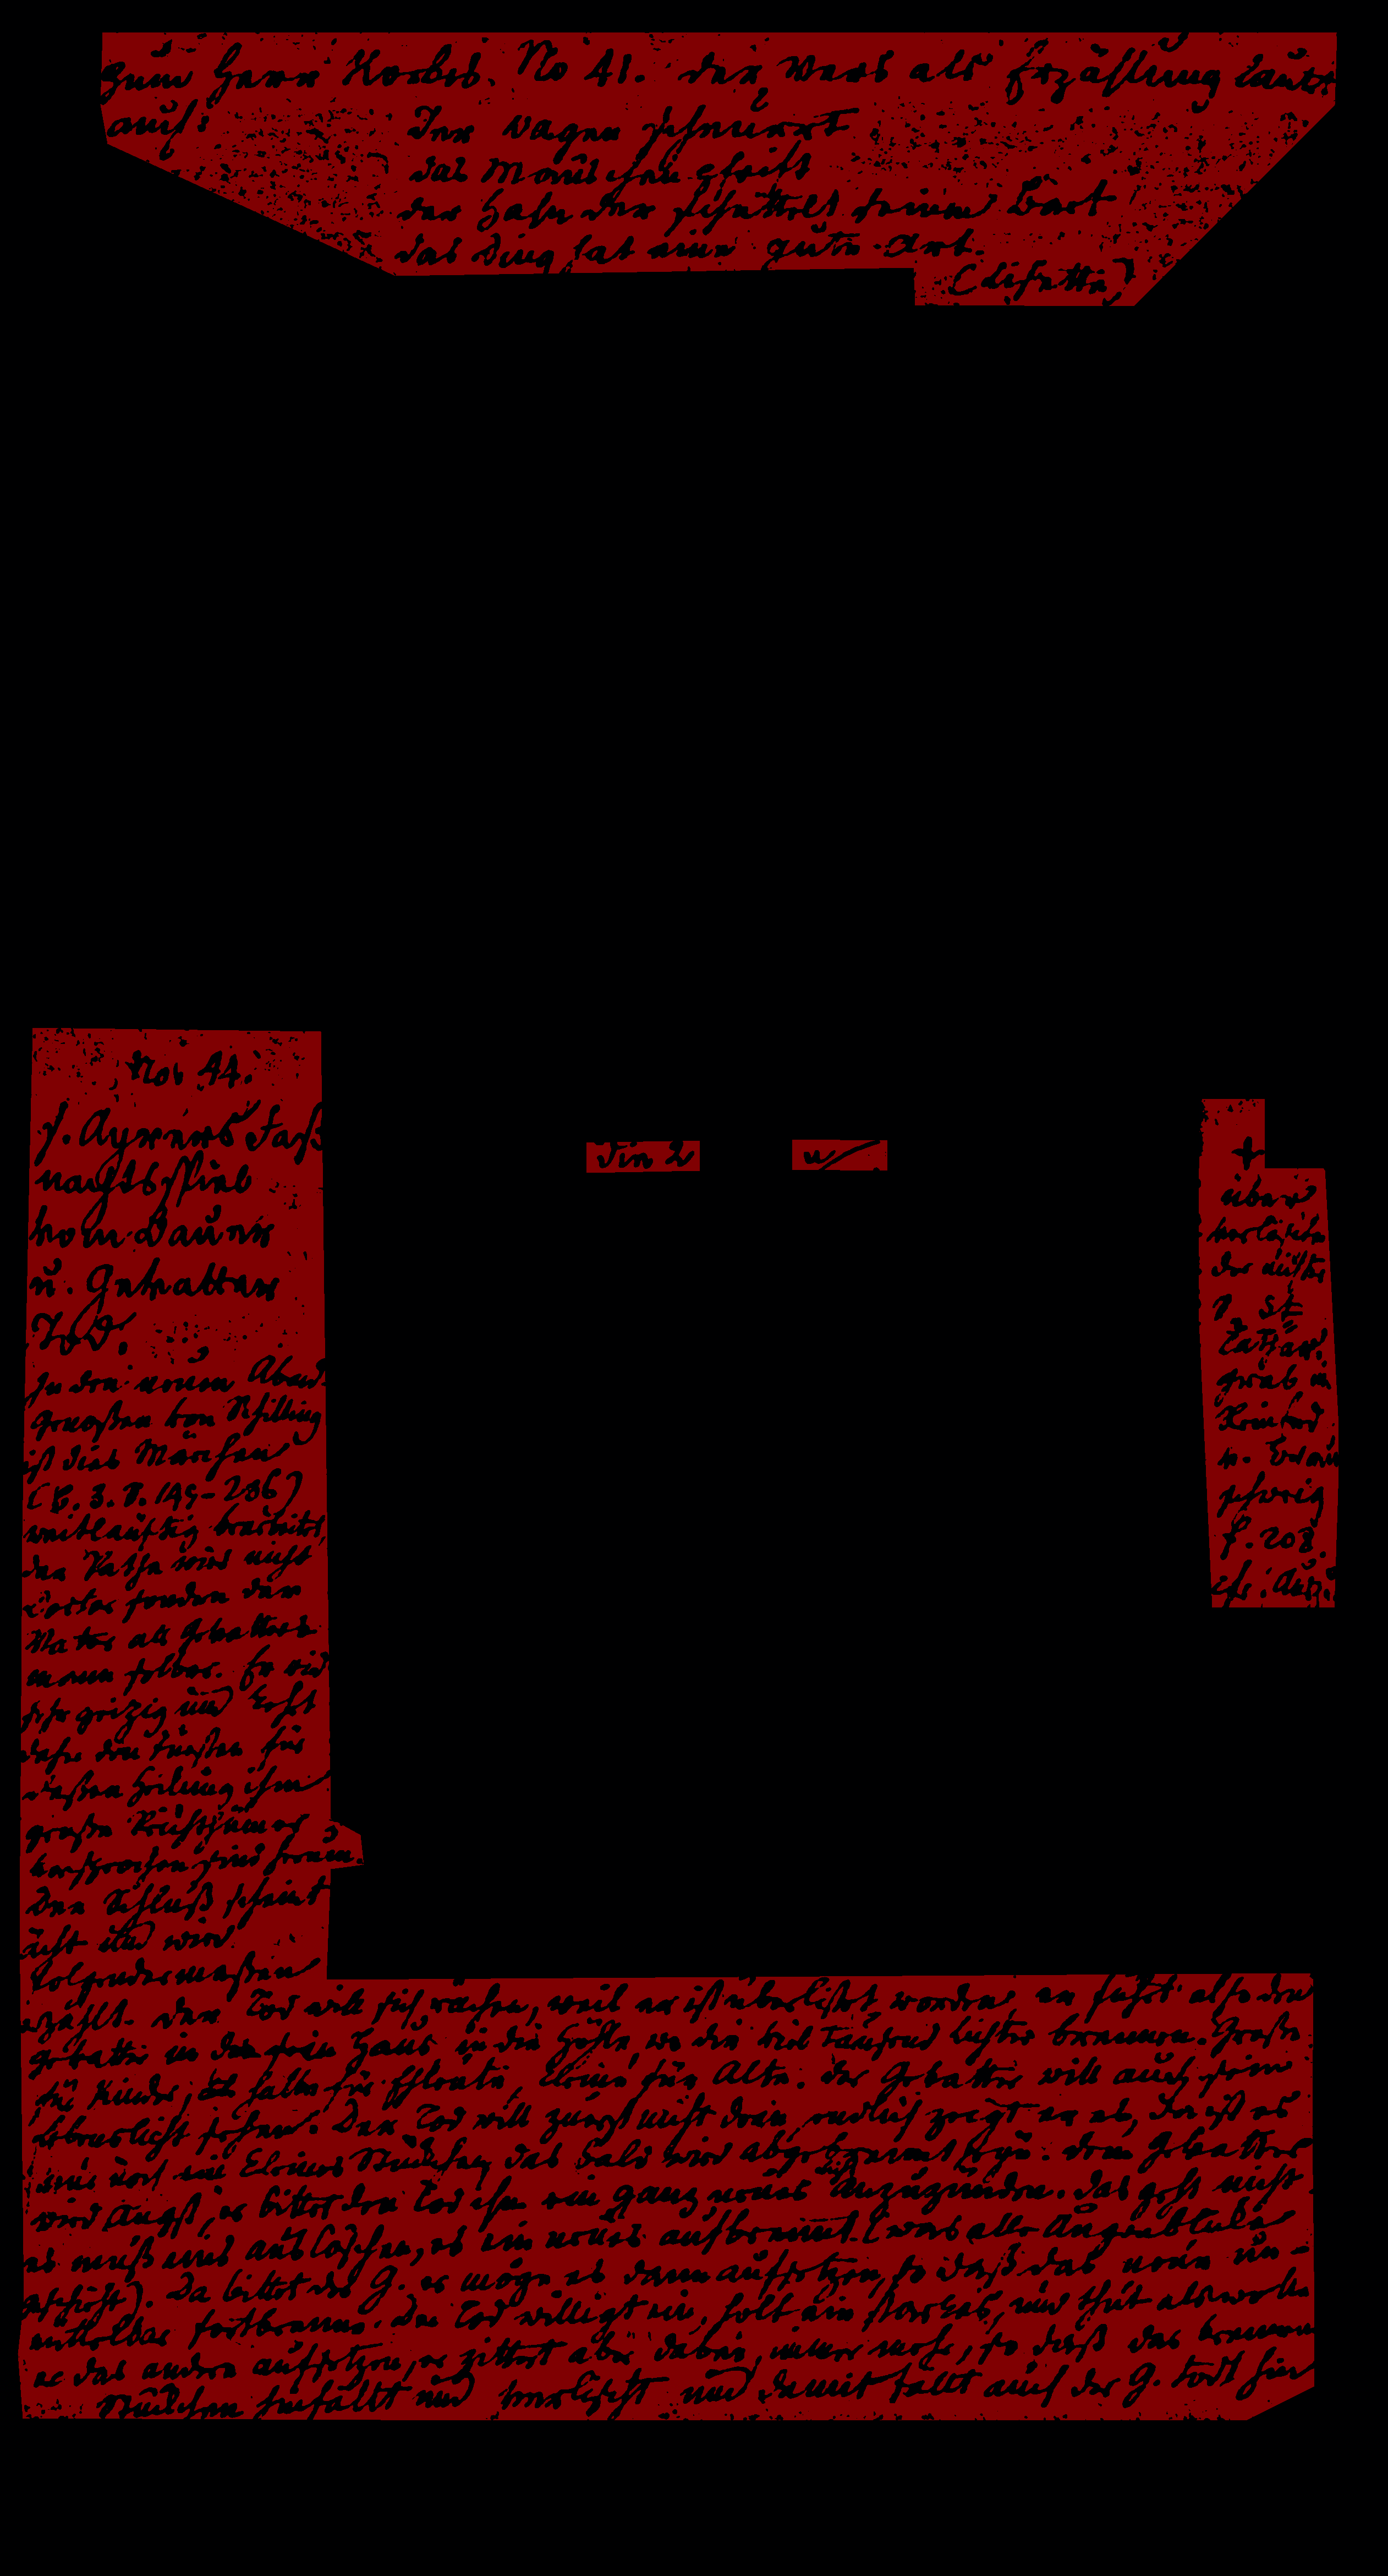 Zum Herr Korbes. No 41. der Vers als Erzählung lautet
auch:
Der Wagen schnurrt
das Mäuschen pfeift
der Hahn der schüttelt seinen Bart
das Ding hat eine gute Art.
(Lisette)
No. 44.
s. Ayrers Faß
nachtsspiel
vom Baur
u. Gevatter
Tod.
In den neuen Abend
genoßen von Schilling
ist dies Märchen
(B. 3. S. 145-286)
weitläuftig bearbeitet,
der Pathe wird nicht
Doctor sondern der
Vater als Gevatters
mann selber. Er wird
sehr geizig und
den Fürsten für
deßen Heilung ihm
große Reichthümer
versprochen sind herum.
Der Schluß scheint
ächt und wird
folgendermaßen
erzählt. der Tod will sich rächen, weil er ist überlistet worden, er führt also den
gevatter in sein Haus in die Höhle, wo die viel tausend Lichter brennen. Große
für Kinder, halbe für Ehleute, kleine für Alte. der Gevatter will auch sein
Lebenslicht sehen. Der Tod will zuerst nicht dran, endlich zeigt er es, da ist es
nur noch ein kleines Stückchen, das bald wird abgebrennt seyn. dem Gevatter
wird Angst, er bittet den Tod ihm ein ganz neues anzuzünden. das geht nicht
es muß eins auslöschen, eh ein neues aufbrennt. (was alle Augenblicke
geschieht). Da bittet der G. er möge es dann aufsetzen, so daß das neue un-
mittelbar fortbrenne. Der Tod willigt ein, holt ein starkes, und thut als wolle
er das andere aufsetzen, er zittert aber dabei, immer mehr, so daß das brennen
Stückchen umfällt und verlischt und damit fällt auch der G. todt hin
die 2
+
über
verlöschen
der
s. St
grab in
Reinhard
v. Braun
schweig
f. 208.
cfr. Aus.